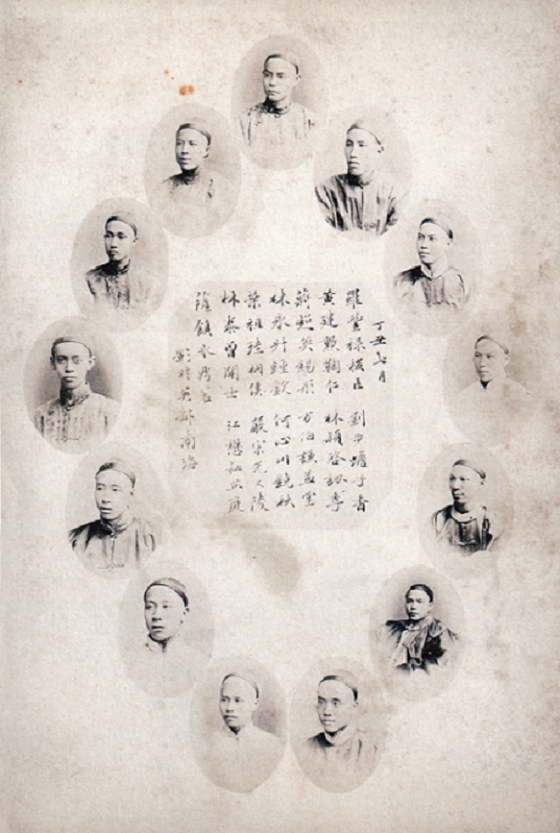 丁丑七月
羅豐祿稷臣 劉步蟾子香
黃建勳鞠仁 林穎啓訒季
蔣超英錫彤 方伯謙益堂
林永升鍾欽 何心川鏡秋
葉祖珪桐侯 嚴宗光又陵
林泰曾闓士 江懋祉 庭
薩鎮冰鼎銘
影時英 南海